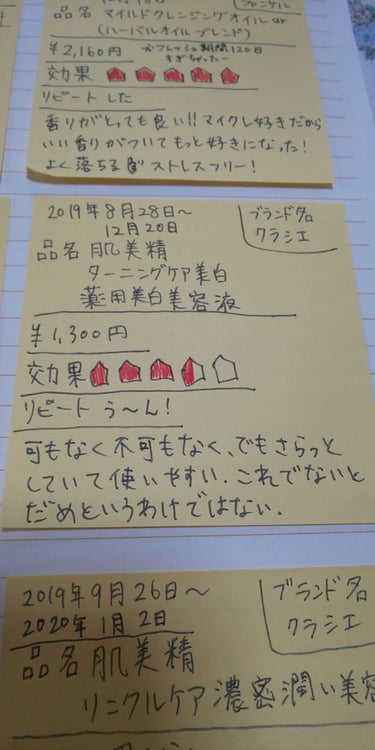 品名 マイルドクレンジングオイル
(ハーバルオイルブレンド)
ファンケル
¥2,160円
フレッシュ期間120日
すぎちゃったー
効果
リピート した
香りがとっても良い!!マイクレ好きだから
いい香りがついてもっと好きになった!
よく落ちる ストレスフリー!
2019年8月28日～
12月20日
ブランド名
クラシエ
品名 肌美精
ターニングケア美白
薬用美白美容液
¥1,300円
効果
リピート う～ん!
可もなく不可もなく、でもさらっと
していて使いやすい.これでないと
だめというわけではない.
2019年9月26日～
2020年1月2日
ブランド名
クラシエ
品名 肌美精
リンクルケア濃密潤い美容